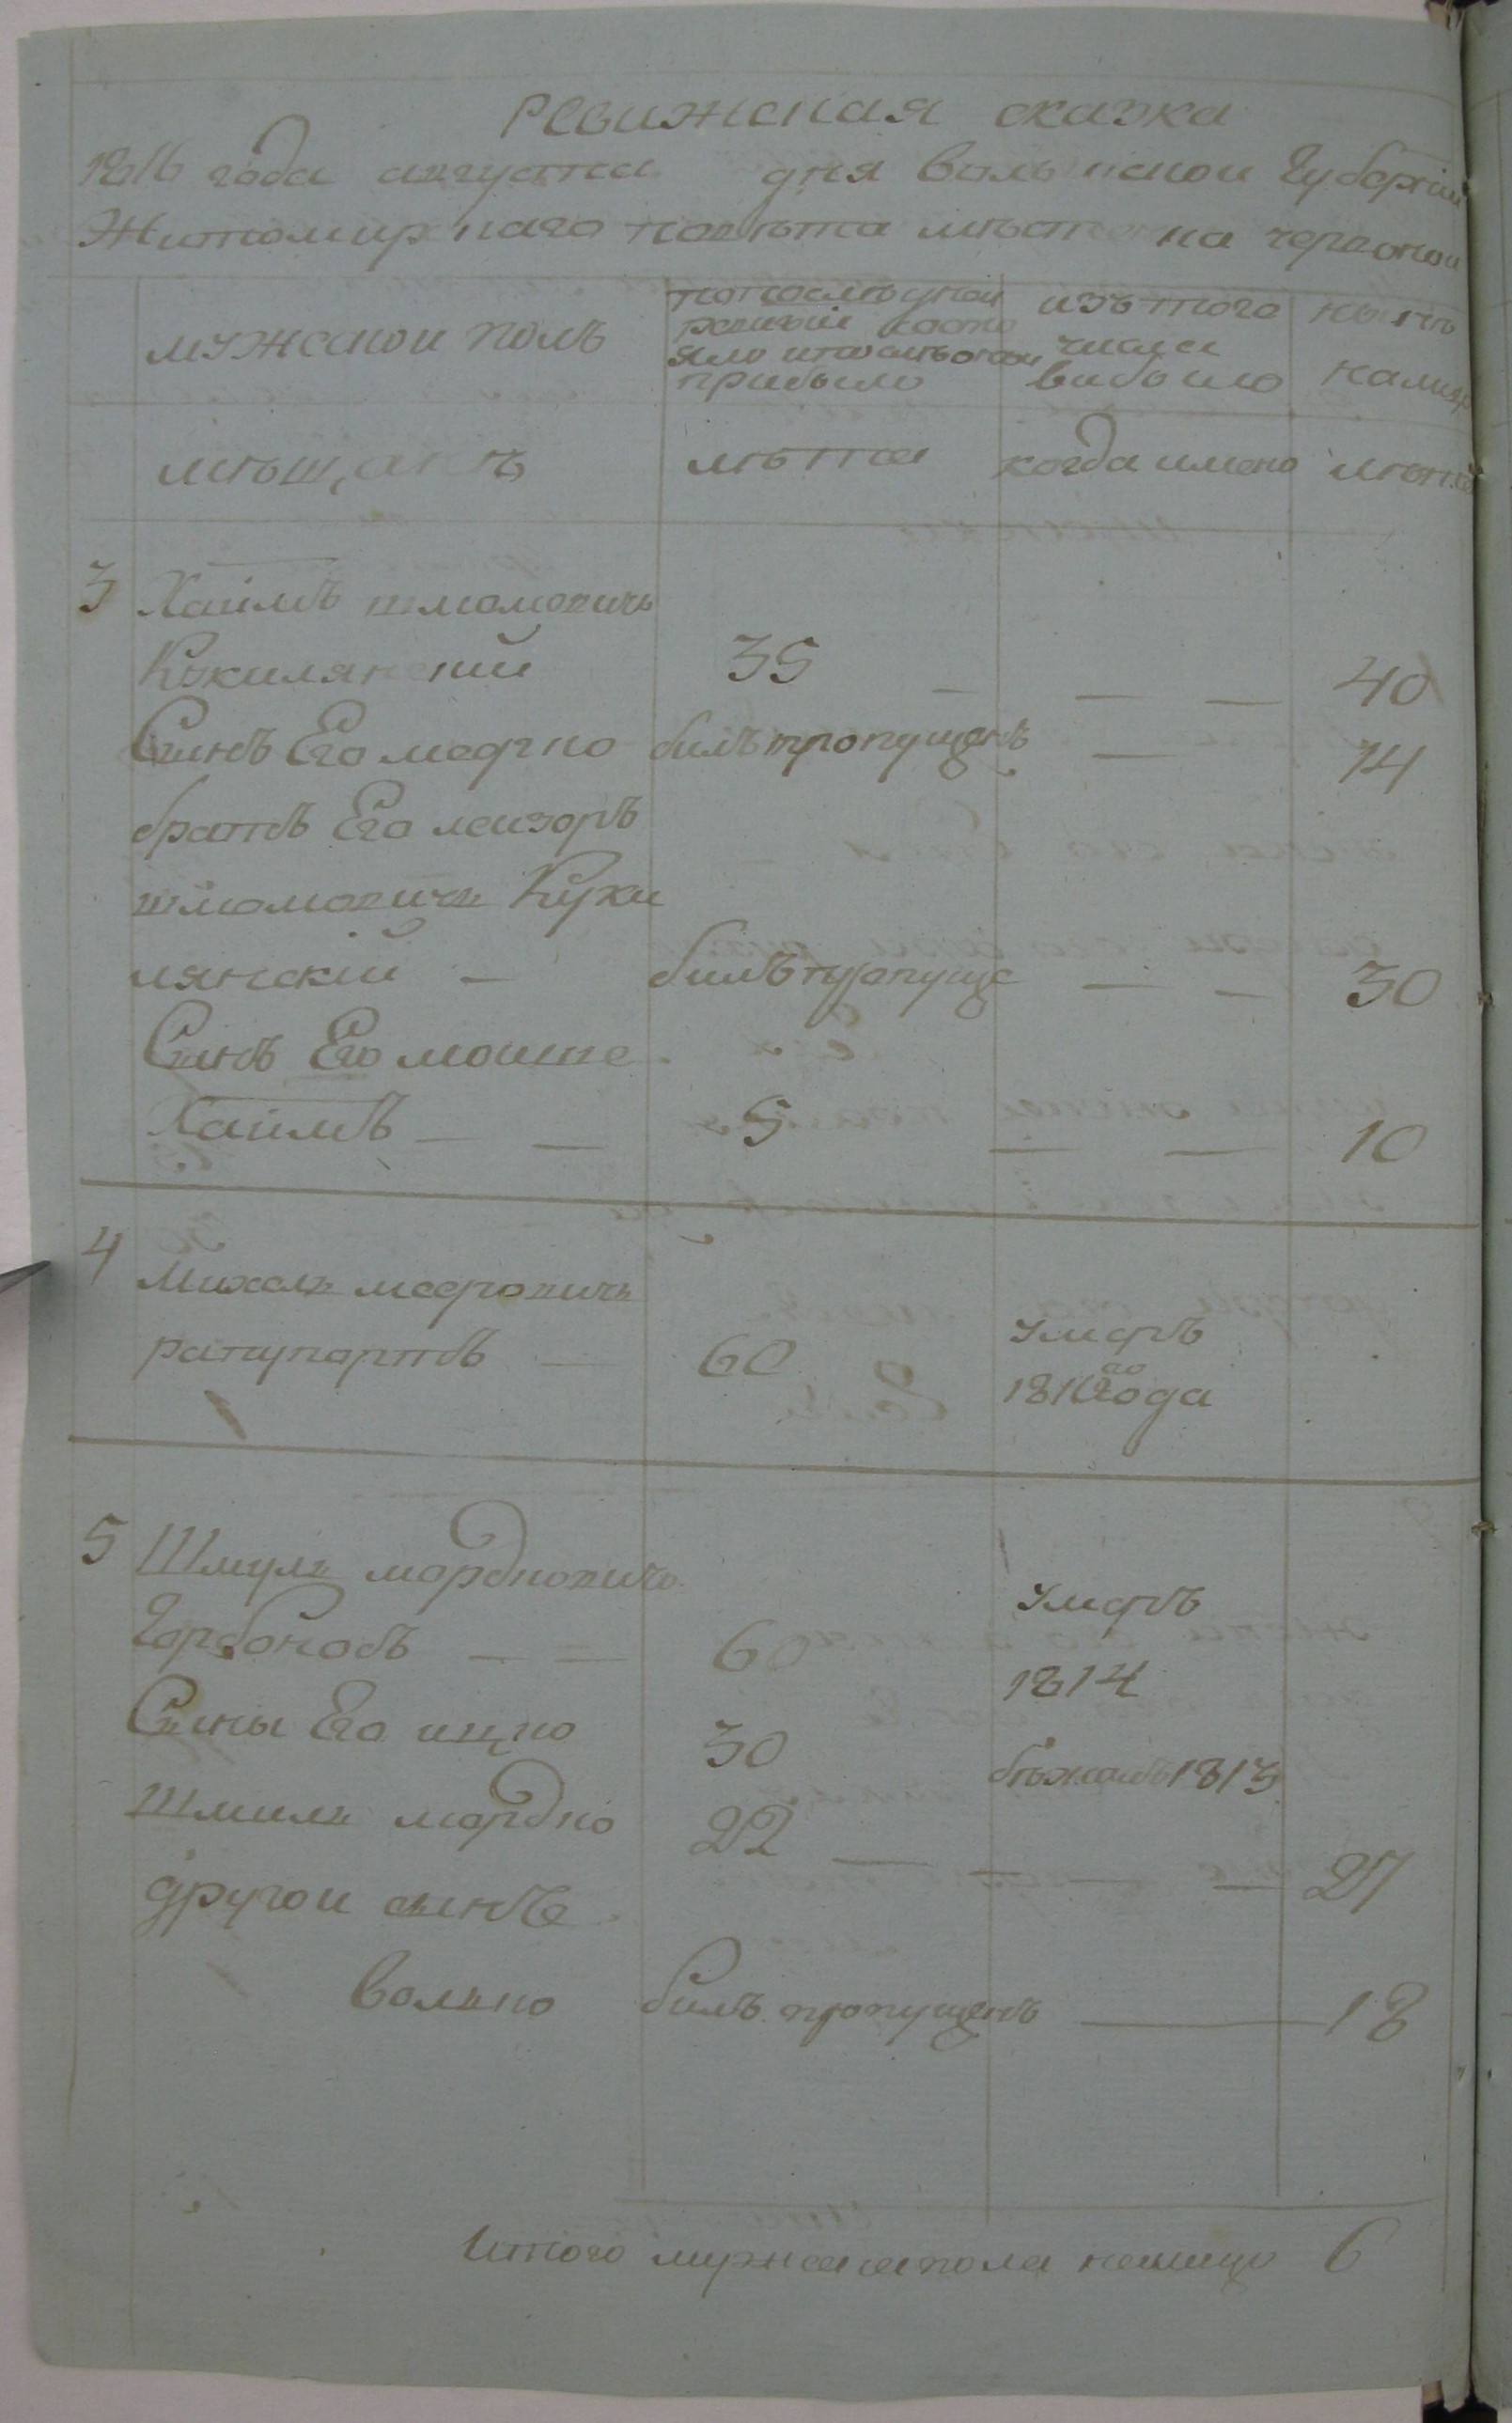 Ревижская сказка
1816 года августа дня Волынской Губернии
Житомирскаго повѣта мѣстечка червоной
мужеской полъ
по последней ревизии состояло и после оной прибыло
изъ того числа выбыло
нынѣ на лицо
мѣщанъ
лѣта
когда имено
лѣта
3 Хаимъ шмомовичь
Кукилянский 35 — — — 40
Сынъ Его меерко былъ пропущенъ — 14
братъ Его леизоръ
шмомовичь Куки
лянский — былъ пропуще — — 30
Сынъ Его мошие
Хаимъ — — 5 — — 10
4 Михель меерович
рапупортъ — 60 умеръ
1810го года
5 Шмуль мордковичь
Горбоновъ — — 60 умеръ
1814
Сыны Его ицко 30 бѣжалъ 1813
шмиль мордко 22 — — — — 27
другои сынъ
волько былъ пропущенъ — 18
Итого мужеска пола налицо 6